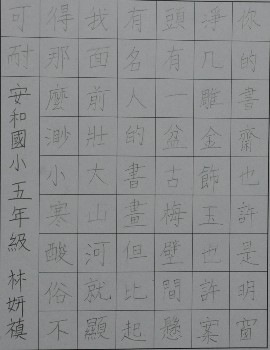 你的書齋也許是明窗
淨几雕金飾玉也許案
頭有一盆古梅壁間懸
有名人的書畫但比起
我面前壯大山河就顯
得那麼渺小寒酸俗不
可耐 安和國小五年級 林妍